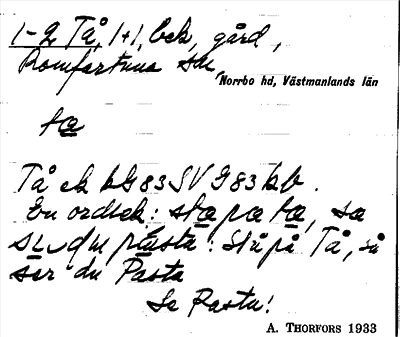 1-2 Tå, 1+1, bek, gård,
Romfartuna sn,
Norrbo hd, Västmanlands län
ta
Tå ek bG83SV G83bb.
En ordlek: sta pa ta, sa
du pasta: Stå på Tå, så
ser du Pasta
Se Rasta!
A. THORFORS 1933